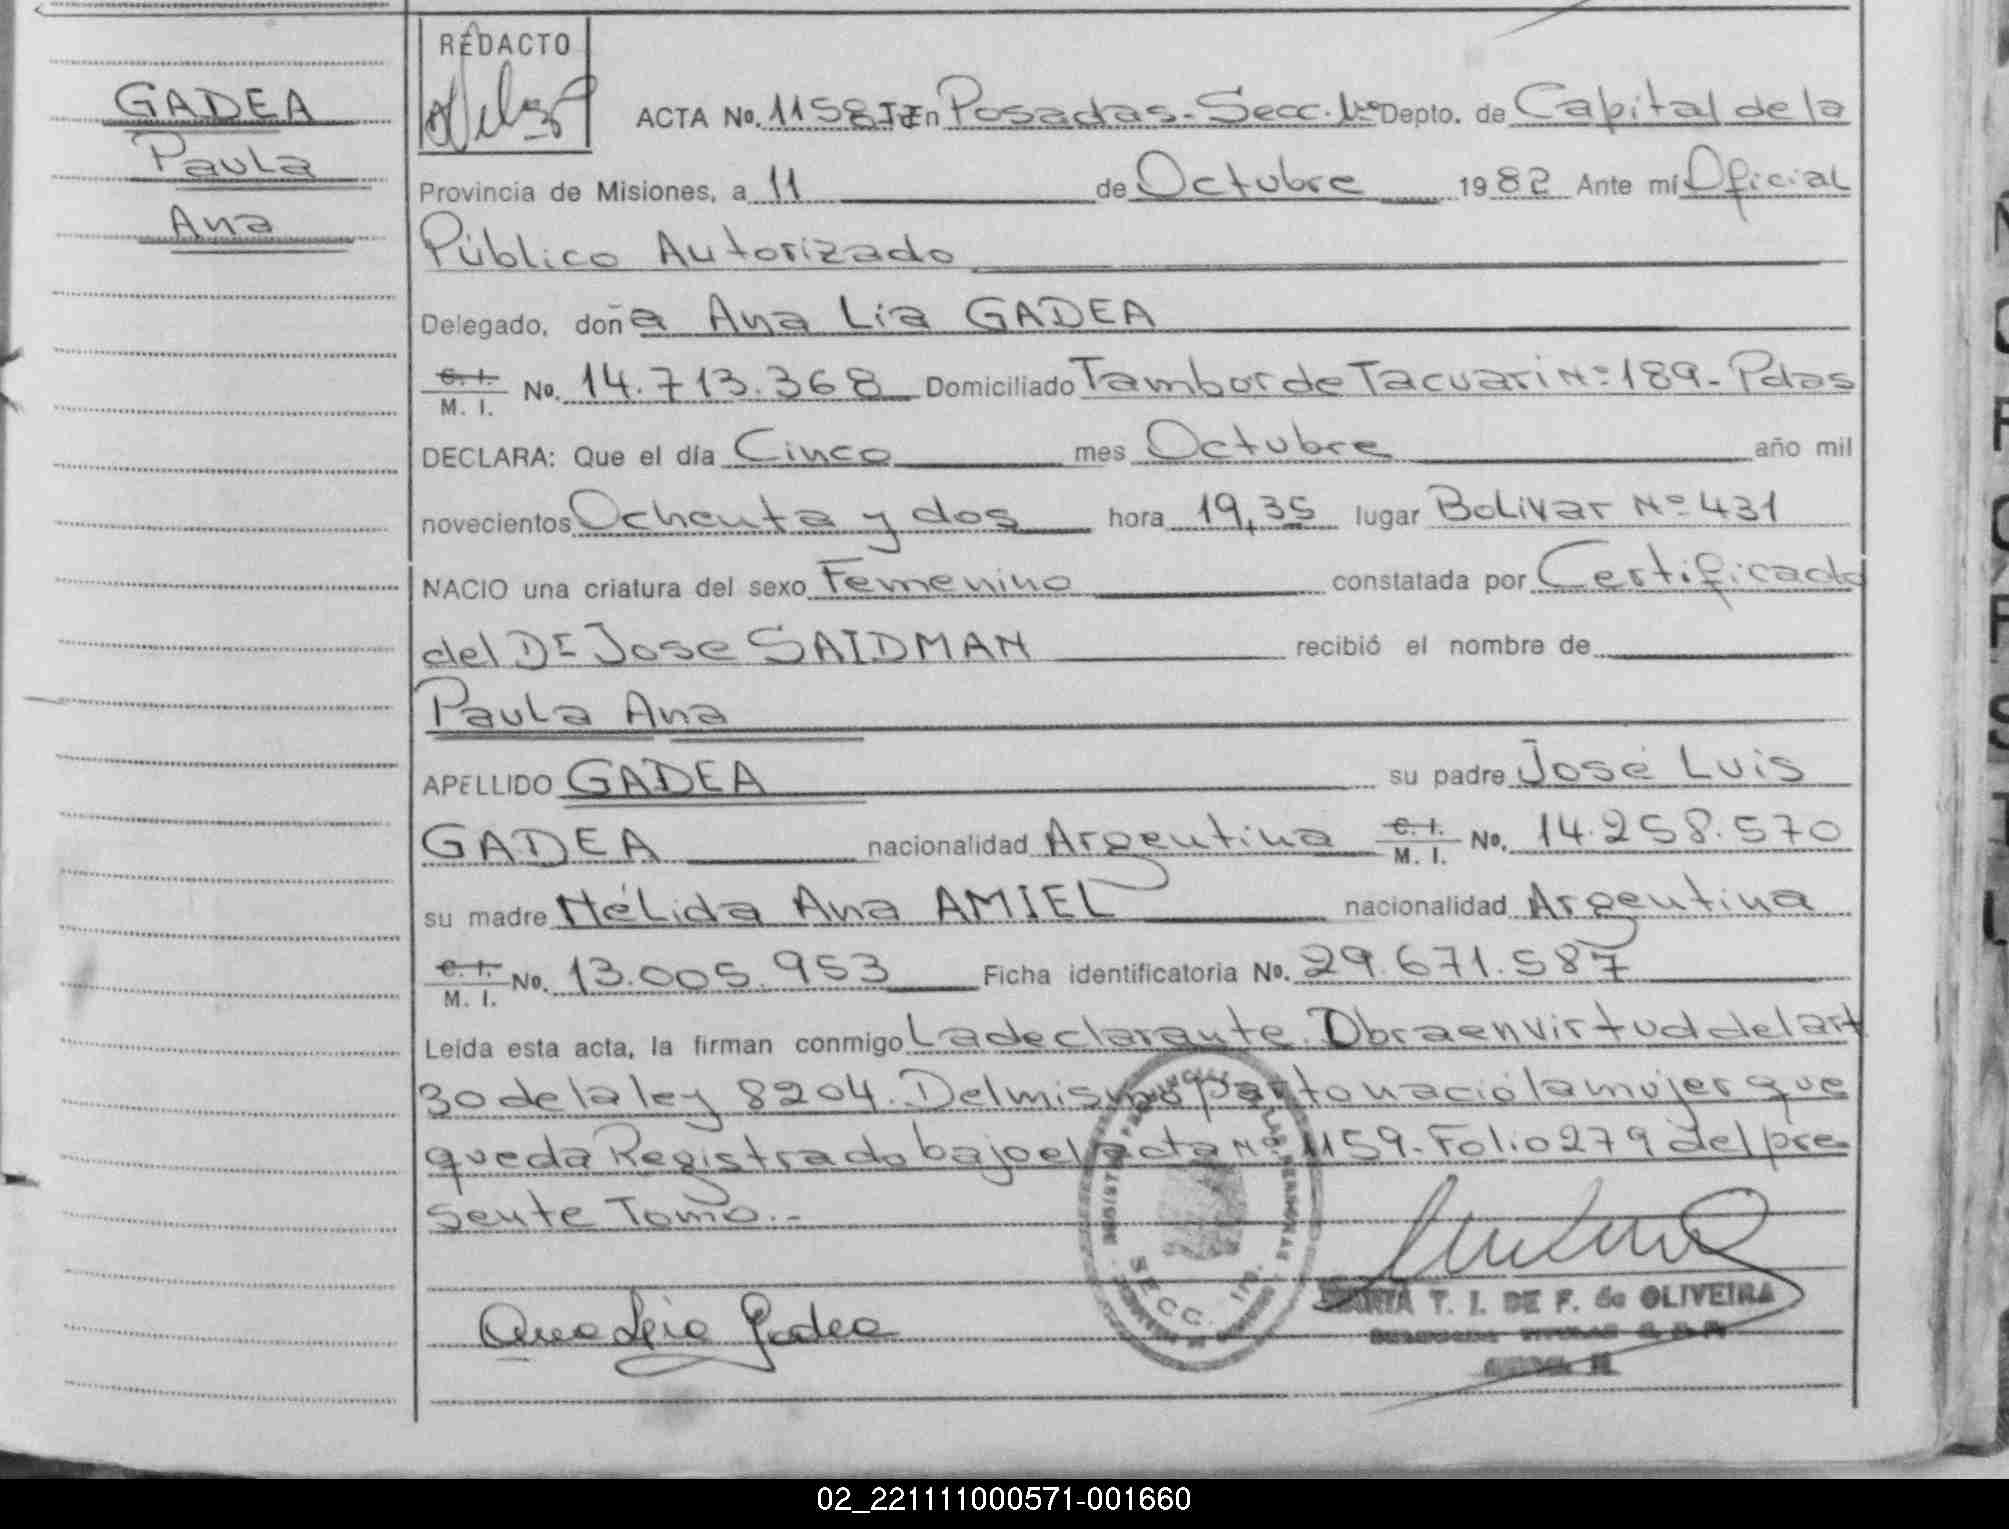 GADEA
Paula
Ana
REDACTO
ACTA No. 1158 En Posadas - Secc. 1ra Depto. de Capital de la
Provincia de Misiones, a 11 de Octubre 1982 Ante mí Oficial
Público Autorizado
Delegado, doña Ana Lia GADEA
C. I. M. I. No. 14.713.368 Domiciliado Tambor de Tacuari Nº 189 - Pdas
DECLARA: Que el día Cinco mes Octubre año mil
novecientos Ochenta y dos hora 19,35 lugar Bolivar Nº 431
NACIO una criatura del sexo Femenino constatada por Certificado
del Dr Jose SAIDMAN recibió el nombre de
Paula Ana
APELLIDO GADEA su padre José Luis
GADEA nacionalidad Argentina C. I. M. I. No. 14.258.570
su madre Nélida Ana AMIEL nacionalidad Argentina
C. I. M. I. No. 13.005.953 Ficha identificatoria No. 29.671.587
Leída esta acta, la firman conmigo La declarante. Obra en virtud del art
30 de la ley 8204. Del mismo parto nació la mujer que
queda Registrado bajo el acta Nº 1159 - Folio 279 del pre
sente Tomo.-
SECC. 1ra.
Ana Lia Gadea
T. I. DE F. de OLIVEIRA
02_221111000571-001660